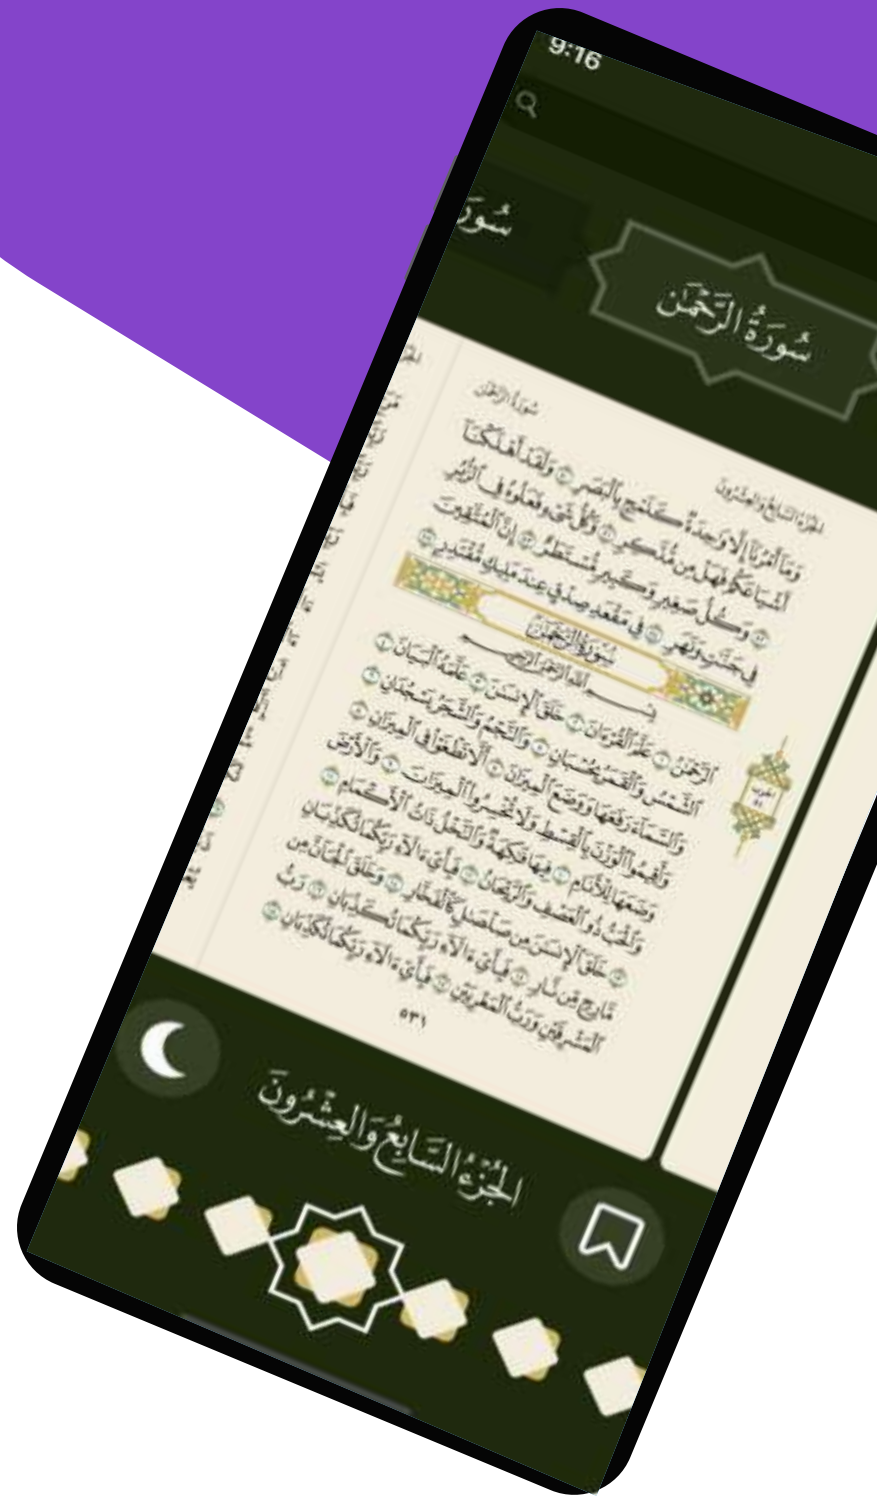 9:16
سُورَ
سُورَةُ الرَّحْمَٰن
الجُزْءُ السَّابِعُ وَالعِشْرُونَ
سُورَةُ الرَّحْمَٰن
وَمَآ أَمْرُنَآ إِلَّا وَٰحِدَةٌ كَلَمْحٍۭ بِٱلْبَصَرِ ٥٠ وَلَقَدْ أَهْلَكْنَآ
أَشْيَاعَكُمْ فَهَلْ مِن مُّدَّكِرٍ ٥١ وَكُلُّ شَىْءٍ فَعَلُوهُ فِى ٱلزُّبُرِ
٥٢ وَكُلُّ صَغِيرٍ وَكَبِيرٍ مُّسْتَطَرٌ ٥٣ إِنَّ ٱلْمُتَّقِينَ
فِى جَنَّٰتٍ وَنَهَرٍ ٥٤ فِى مَقْعَدِ صِدْقٍ عِندَ مَلِيكٍ مُّقْتَدِرٍۭ ٥٥
سُورَةُ الرَّحْمَٰن
بِسْمِ ٱللَّهِ ٱلرَّحْمَٰنِ ٱلرَّحِيمِ
ٱلرَّحْمَٰنُ ١ عَلَّمَ ٱلْقُرْءَانَ ٢ خَلَقَ ٱلْإِنسَٰنَ ٣ عَلَّمَهُ ٱلْبَيَانَ ٤
ٱلشَّمْسُ وَٱلْقَمَرُ بِحُسْبَانٍ ٥ وَٱلنَّجْمُ وَٱلشَّجَرُ يَسْجُدَانِ ٦
وَٱلسَّمَآءَ رَفَعَهَا وَوَضَعَ ٱلْمِيزَانَ ٧ أَلَّا تَطْغَوْا۟ فِى ٱلْمِيزَانِ ٨
وَأَقِيمُوا۟ ٱلْوَزْنَ بِٱلْقِسْطِ وَلَا تُخْسِرُوا۟ ٱلْمِيزَانَ ٩ وَٱلْأَرْضَ
وَضَعَهَا لِلْأَنَامِ ١٠ فِيهَا فَٰكِهَةٌ وَٱلنَّخْلُ ذَاتُ ٱلْأَكْمَامِ ١١
وَٱلْحَبُّ ذُو ٱلْعَصْفِ وَٱلرَّيْحَانُ ١٢ فَبِأَىِّ ءَالَآءِ رَبِّكُمَا تُكَذِّبَانِ
١٣ خَلَقَ ٱلْإِنسَٰنَ مِن صَلْصَٰلٍ كَٱلْفَخَّارِ ١٤ وَخَلَقَ ٱلْجَآنَّ مِن
مَّارِجٍ مِّن نَّارٍ ١٥ فَبِأَىِّ ءَالَآءِ رَبِّكُمَا تُكَذِّبَانِ ١٦ رَبُّ
ٱلْمَشْرِقَيْنِ وَرَبُّ ٱلْمَغْرِبَيْنِ ١٧ فَبِأَىِّ ءَالَآءِ رَبِّكُمَا تُكَذِّبَانِ ١٨
٥٣١
الجُزْءُ السَّابِعُ وَالعِشْرُونَ